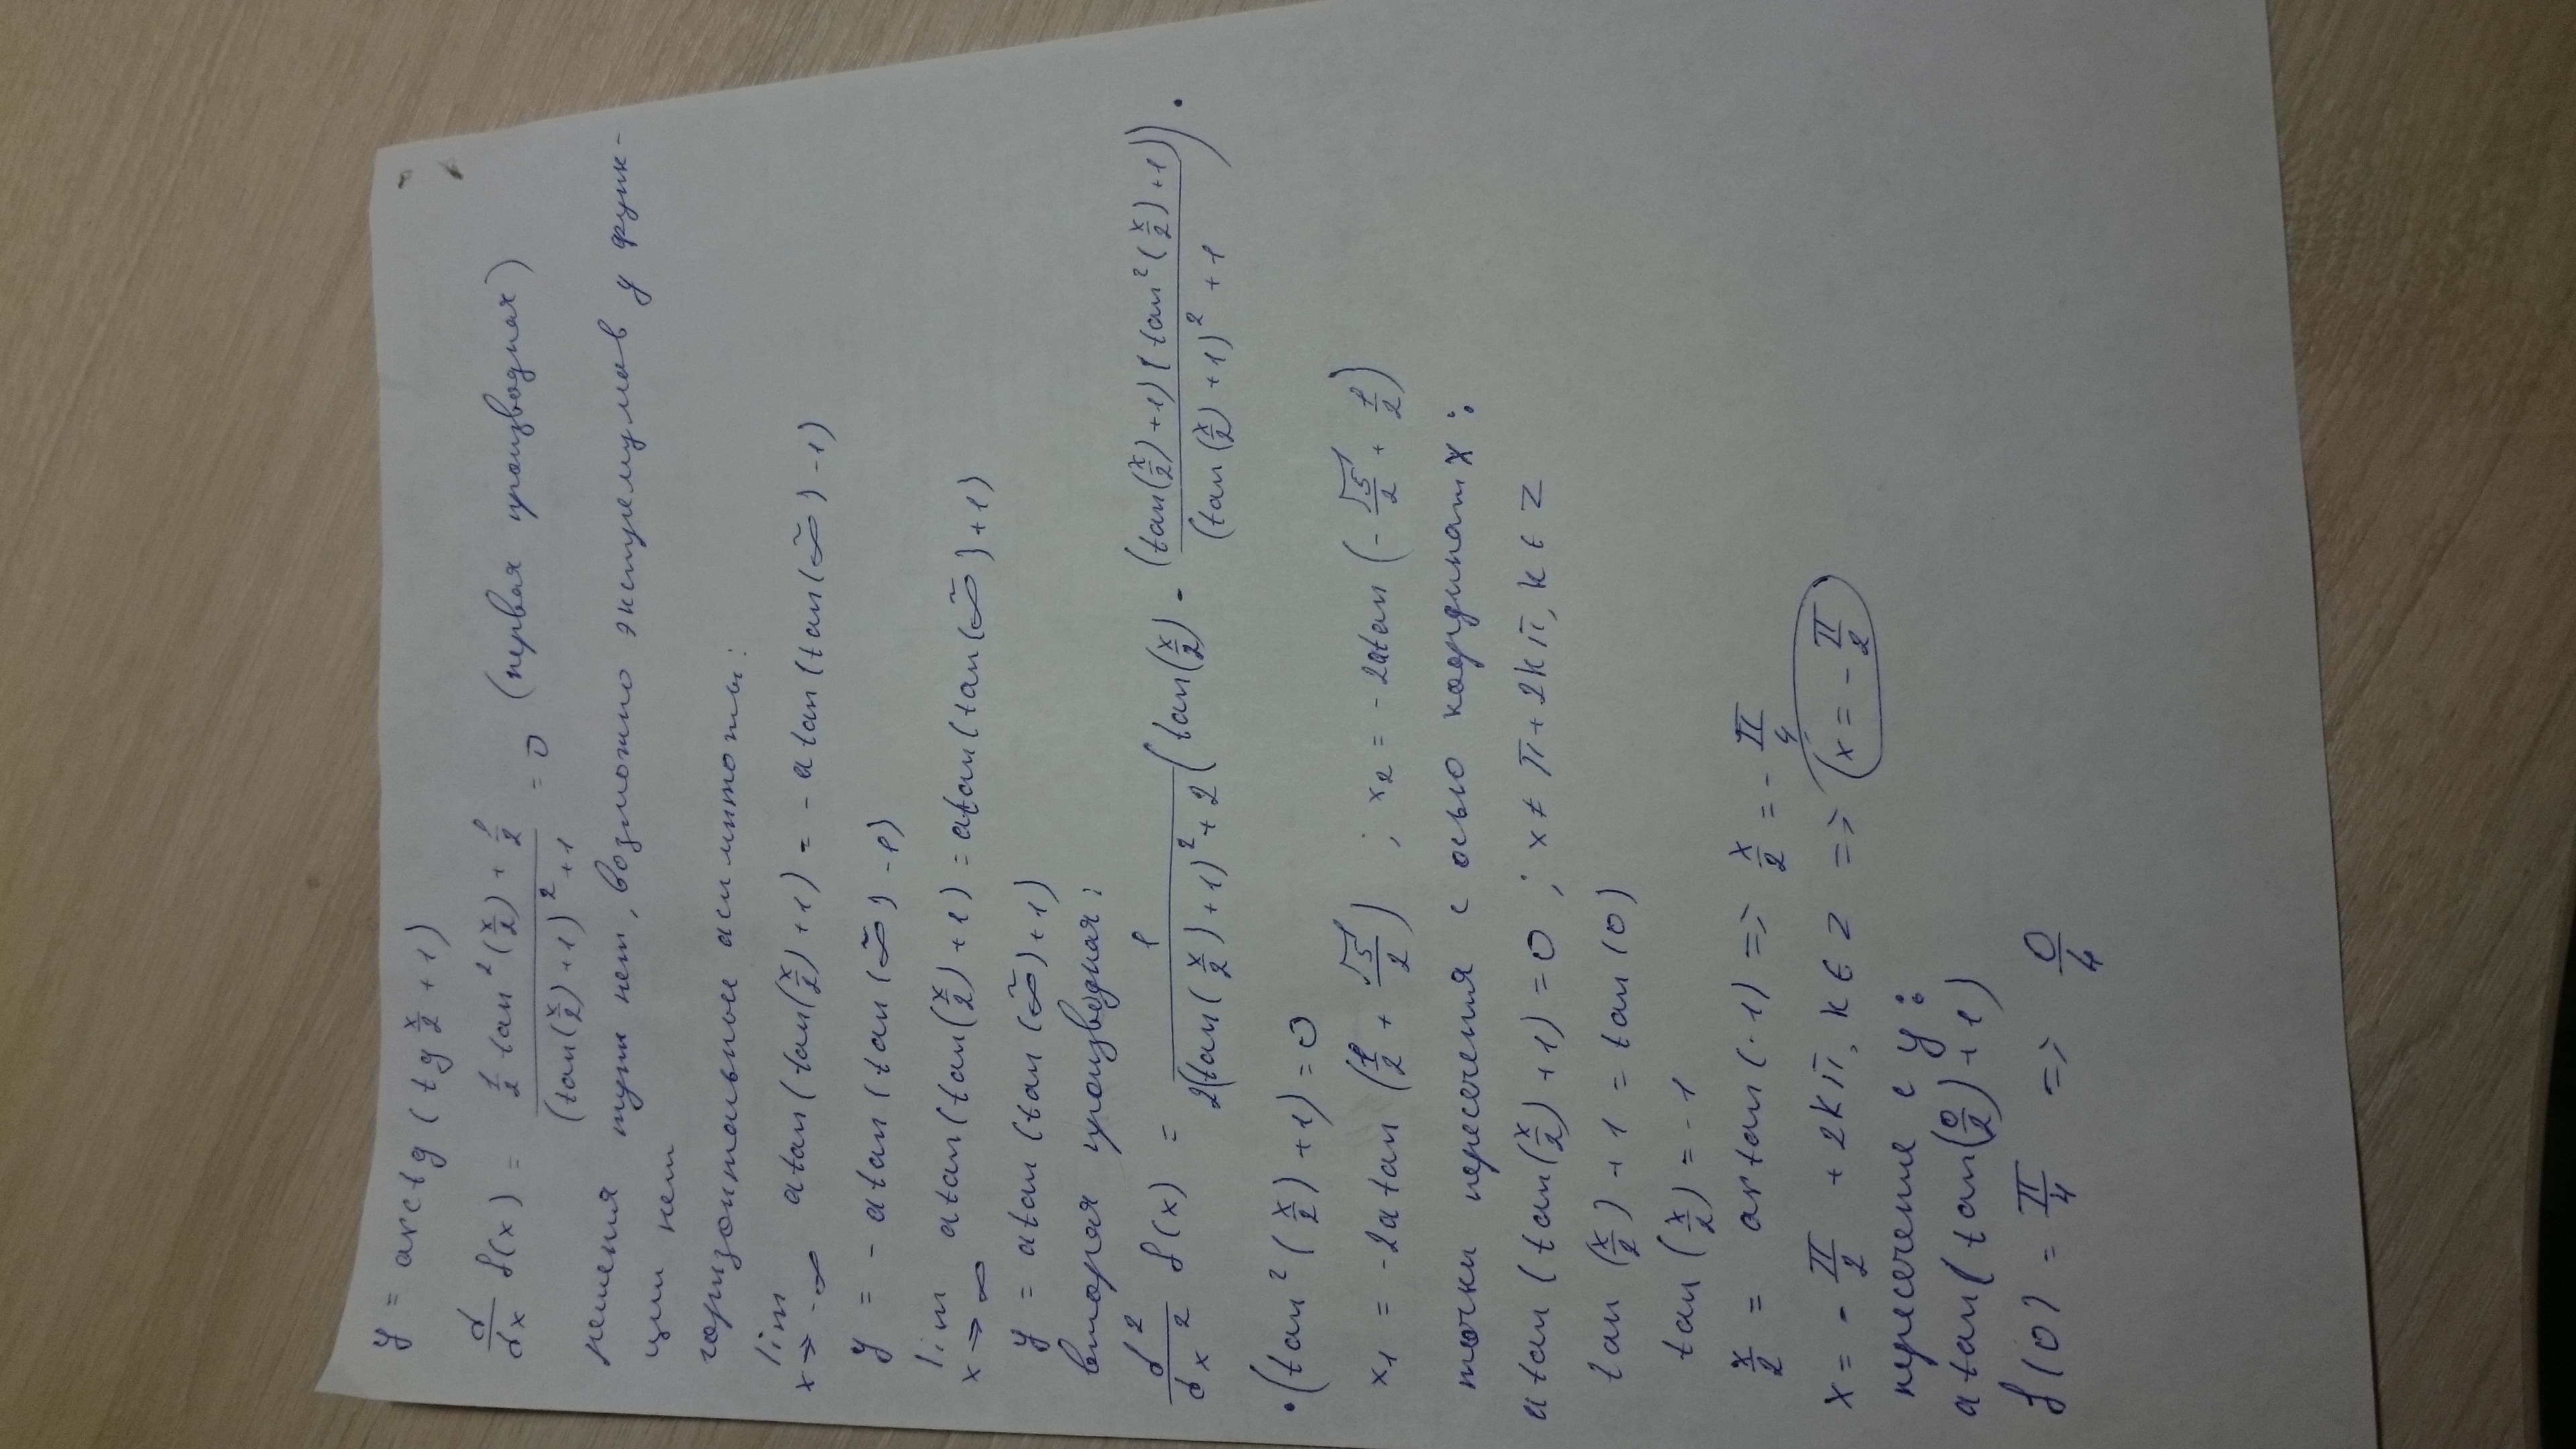 y = arctg (tg x/2 + 1)
d/dx f(x) = (1/2 tan²(x/2) + 1/2)/((tan(x/2)+1)² + 1) = 0 (первая производная)
решения тут нет, возможно экстремумов у функ-
ции нет
горизонтальные асимптоты:
lim x→-∞ atan(tan(x/2)+1) = -atan(tan(∞̃)-1)
y = -atan(tan(∞̃)-1)
lim x→∞ atan(tan(x/2)+1) = atan(tan(∞̃)+1)
y = atan(tan(∞̃)+1)
вторая производная:
d²/dx² f(x) = 1/(2(tan(x/2)+1)²+2) (tan(x/2) - (tan(x/2)+1)(tan²(x/2)+1))/((tan(x/2)+1)²+1) ·
· (tan²(x/2)+1) = 0
x₁ = -2atan(1/2 + √5/2) ; x₂ = -2atan(-√5/2 + 1/2)
точки пересечения с осью координат x:
atan(tan(x/2)+1) = 0 ; x ≠ π + 2kπ, k ∈ Z
tan(x/2) + 1 = tan(0)
tan(x/2) = -1
x/2 = artan(-1) => x/2 = -π/4
x = -π/2 + 2kπ, k ∈ Z => (x = -π/2)
пересечение с y:
atan(tan(0/2)+1)
f(0) = π/4 => 0/4